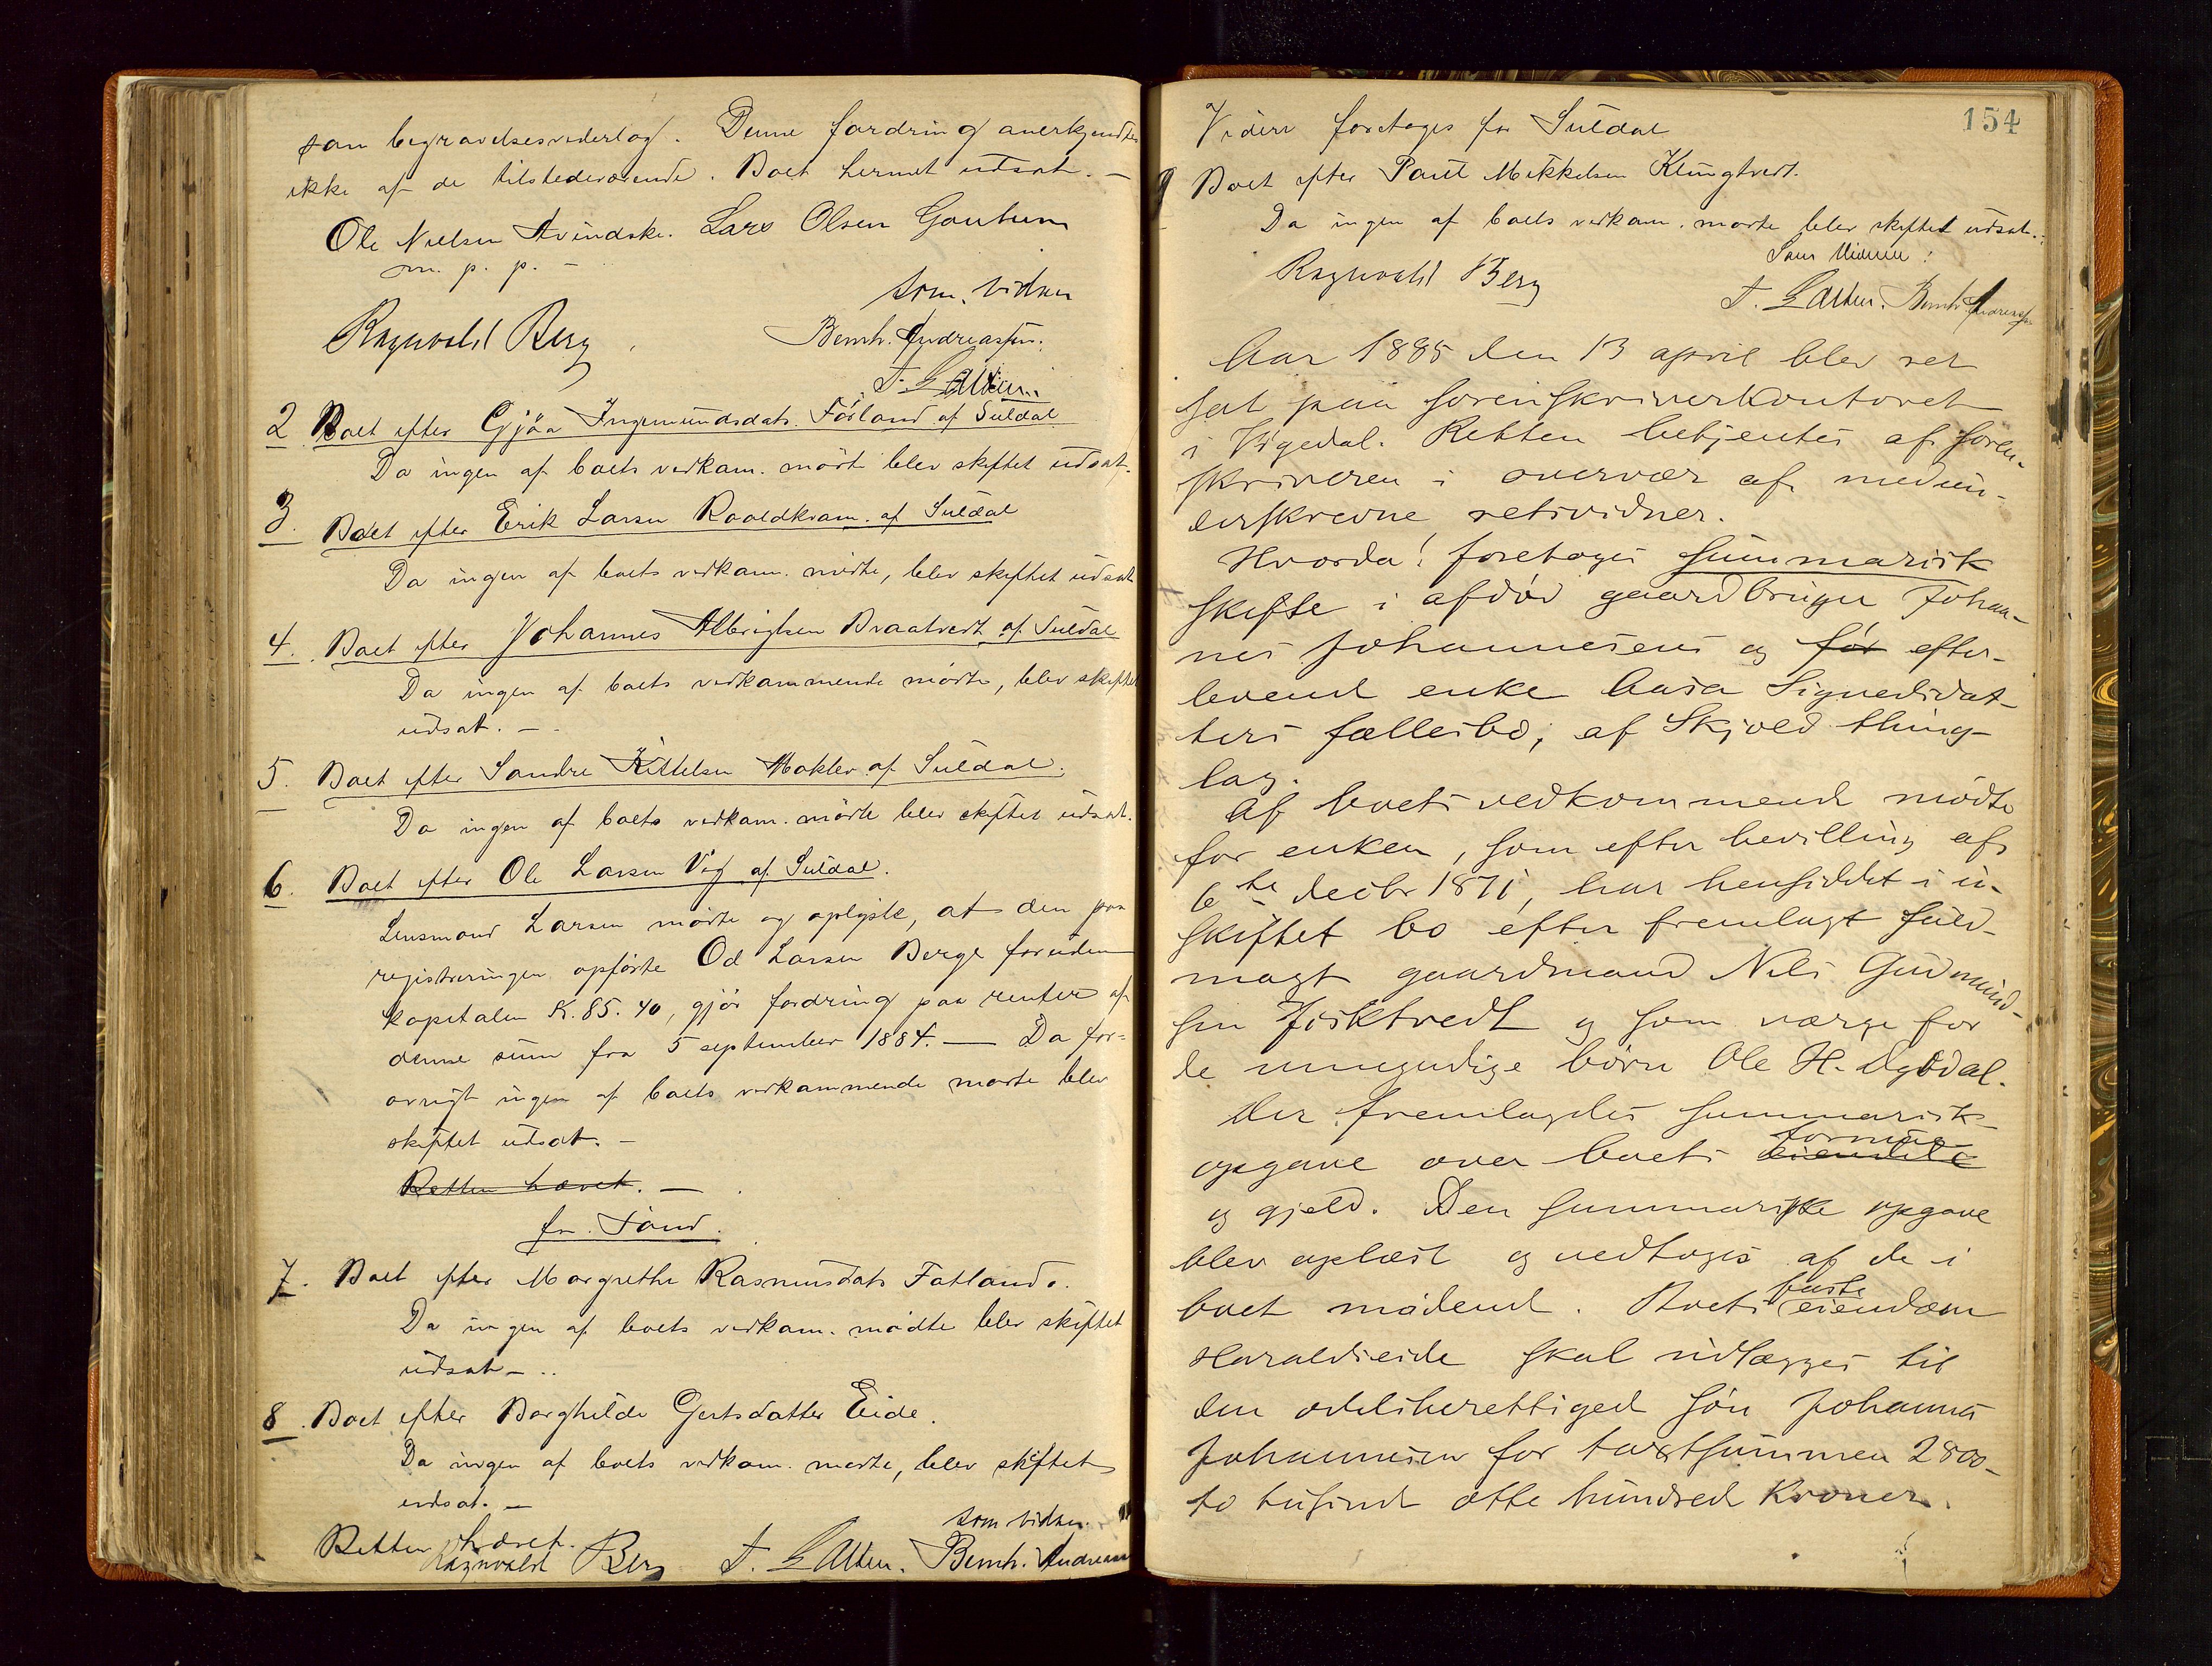 som begravelsesvederlag. Denne fordring anerkjendtes
ikke af de tilstedeværende. Boet hermed udsat. —
Ole Nielsen Lars Olsen Gautun
m. p. p. —
som vidner
Ragnvald Berg Bernh. Andreassen.
2 Boet efter Gjøa Ingemundsdatr. Førland af Suldal
Da ingen af boets vedkom. mødte blev skiftet udsat.
3. Boet efter Erik Larsen Roaldkvam. af Suldal
Da ingen af boets vedkom. mødte, blev skiftet udsat
4. Boet efter Johannes Albrigtsen Braatvedt af Suldal
Da ingen af boets vedkommende mødte, blev skiftet
udsat. —
5. Boet efter Sondre Kittelsen af Suldal.
Da ingen af boets vedkom. mødte blev skiftet udsat.
6. Boet efter Ole Larsen Vig af Suldal.
Lensmand Larsen mødte og oplyste, at den paa
registreringen opførte Od Larsen Berge foruden
kapitalen K. 85. 40, gjør fordring paa renter af
denne sum fra 5 september 1884. — Da for-
øvrigt ingen af boets vedkommende mødte blev
skiftet udsat. —
Retten hævet. —
for Sand.
7. Boet efter Margrethe Rasmusdatr Fatland.
Da ingen af boets vedkom. mødte blev skiftet
udsat —
8. Boet efter Borghilde Gertsdatter Eide.
Da ingen af boets vedkom. mødte, blev skiftet
udsat. —
som vidner.
Retten hævet.
Ragnvald Berg Bernh. Andreassen
154
Videre foretoges for Suldal
9 Boet efter Paul Mikkelsen Klungtvedt.
Da ingen af boets vedkom. mødte blev skiftet udsat.
Som Vidner:
Ragnvald Berg Bernh. Andreassen
Aar 1885 den 13 april blev ret
sat paa sorenskriverkontoret
i Vigedal. Retten betjentes af soren-
skriveren i overvær af medun-
derskrevne retsvidner.
Hvorda! foretoges summarisk
skifte i afdød gaardbruger Johan-
nes Johannesens og før efter-
levende enke Aasa Signedsdat-
ters fællesbo, af Skjold thing-
lag.
Af boets vedkommende mødte
for enken, som efter bevilling af
6te decbr 1871, har hensiddet i u-
skiftet bo efter fremlagt fuld-
magt gaardmand Nils Gudmund-
sen og som værge for
de umyndige børn Ole H.
Der fremlagdes summarisk
formue
opgave over boets eiendele
og gjeld. Den summariske opgave
blev oplæst og vedtoges af de i
faste
boet mødende. Boets eiendom
Haraldseide skal udlægges til
den odelsberettigede søn Johannes
Johannesen for taxtsummen 2800–
to tusinde otte hundrede Kroner.